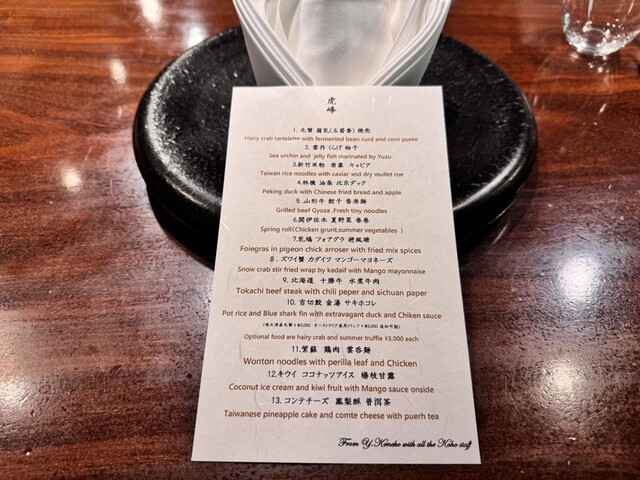 虎
峰
1. 毛蟹 腐乳(玉蜀黍) 焼売
Hairy crab tartelette with fermented bean curd and corn puree
2. 雲丹 くらげ 柚子
Sea urchin and jelly fish marinated by Yuzu
3.新竹米粉 唐墨 キャビア
Taiwan rice noodles with caviar and dry mullet roe
4.林檎 油条 北京ダック
Peking duck with Chinese fried bread and apple
5.山形牛 餃子 香港麺
Grilled beef Gyoza ,Fresh tiny noodles
6.関伊佐木 夏野菜 春巻
Spring roll(Chicken grunt,summer vegetables )
7.乳鳩 フォアグラ 避風塘
Foiegras in pigeon chick arroser with fried mix spices
8.ズワイ蟹 カダイフ マンゴーマヨネーズ
Snow crab stir fried wrap by kadaif with Mango mayonnaise
9. 北海道 十勝牛 水煮牛肉
Tokachi beef steak with chili peper and sichuan paper
10. 吉切鮫 金湯 サキホコレ
Pot rice and Blue shark fin with extravagant duck and Chiken sauce
Optional food are hairy crab and summer truffle ¥3,000 each
11.紫蘇 鶏肉 雲呑麺
Wonton noodles with perilla leaf and Chicken
12.キウイ ココナッツアイス 楊枝甘露
Coconut ice cream and kiwi fruit with Mango sauce onside
13.コンテチーズ 鳳梨酥 普洱茶
Taiwanese pineapple cake and comte cheese with puerh tea
From Y.Koneko with all the Koho staff